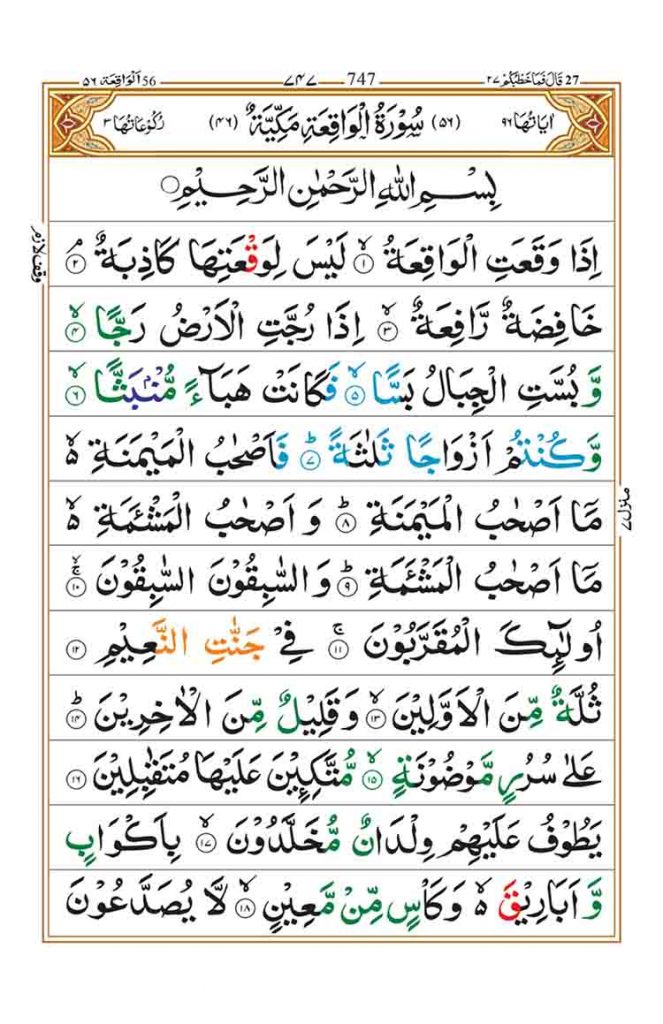 56 اَلْوَاقِعَة ٥٦ ٧٤٧ 747 27 قَالَ فَمَا خَطْبُكُمْ ٢٧
اٰيَاتُهَا ٩٦ (٥٦) سُوْرَةُ الْوَاقِعَةِ مَكِّيَّةٌ (٤٦) رُكُوْعَاتُهَا ٣
بِسْمِ اللّٰهِ الرَّحْمٰنِ الرَّحِيْمِ
اِذَا وَقَعَتِ الْوَاقِعَةُ ۙ‏﴿۱﴾ لَيْسَ لِوَقْعَتِهَا كَاذِبَةٌ ۘ‏﴿۲﴾
وقف لازم
خَافِضَةٌ رَّافِعَةٌ ۙ‏﴿۳﴾ اِذَا رُجَّتِ الْاَرْضُ رَجًّا ۙ‏﴿۴﴾
وَّ بُسَّتِ الْجِبَالُ بَسًّا ۙ‏﴿۵﴾ فَكَانَتْ هَبَآءً مُّنْۢبَثًّا ۙ‏﴿۶﴾
وَّكُنْتُمْ اَزْوَاجًا ثَلٰثَةً ؕ‏﴿۷﴾ فَاَصْحٰبُ الْمَيْمَنَةِ ۙ۬
مَاۤ اَصْحٰبُ الْمَيْمَنَةِ ؕ‏﴿۸﴾ وَ اَصْحٰبُ الْمَشْـَٔمَةِ ۙ۬
منزل ٧
مَاۤ اَصْحٰبُ الْمَشْـَٔمَةِ ؕ‏﴿۹﴾ وَ السّٰبِقُوْنَ السّٰبِقُوْنَ ۚ ۙ‏﴿۱۰﴾
اُولٰٓئِكَ الْمُقَرَّبُوْنَ ۚ‏﴿۱۱﴾ فِيْ جَنّٰتِ النَّعِيْمِ‏﴿۱۲﴾
ثُلَّةٌ مِّنَ الْاَوَّلِيْنَ ۙ‏﴿۱۳﴾ وَ قَلِيْلٌ مِّنَ الْاٰخِرِيْنَ ؕ‏﴿۱۴﴾
عَلٰى سُرُرٍ مَّوْضُوْنَةٍ ۙ‏﴿۱۵﴾ مُّتَّكِـِٕيْنَ عَلَيْهَا مُتَقٰبِلِيْنَ‏﴿۱۶﴾
يَطُوْفُ عَلَيْهِمْ وِلْدَانٌ مُّخَلَّدُوْنَ ۙ‏﴿۱۷﴾ بِاَكْوَابٍ
وَّ اَبَارِيْقَ ۙ۬ وَ كَاْسٍ مِّنْ مَّعِيْنٍ ۙ‏﴿۱۸﴾ لَّا يُصَدَّعُوْنَ